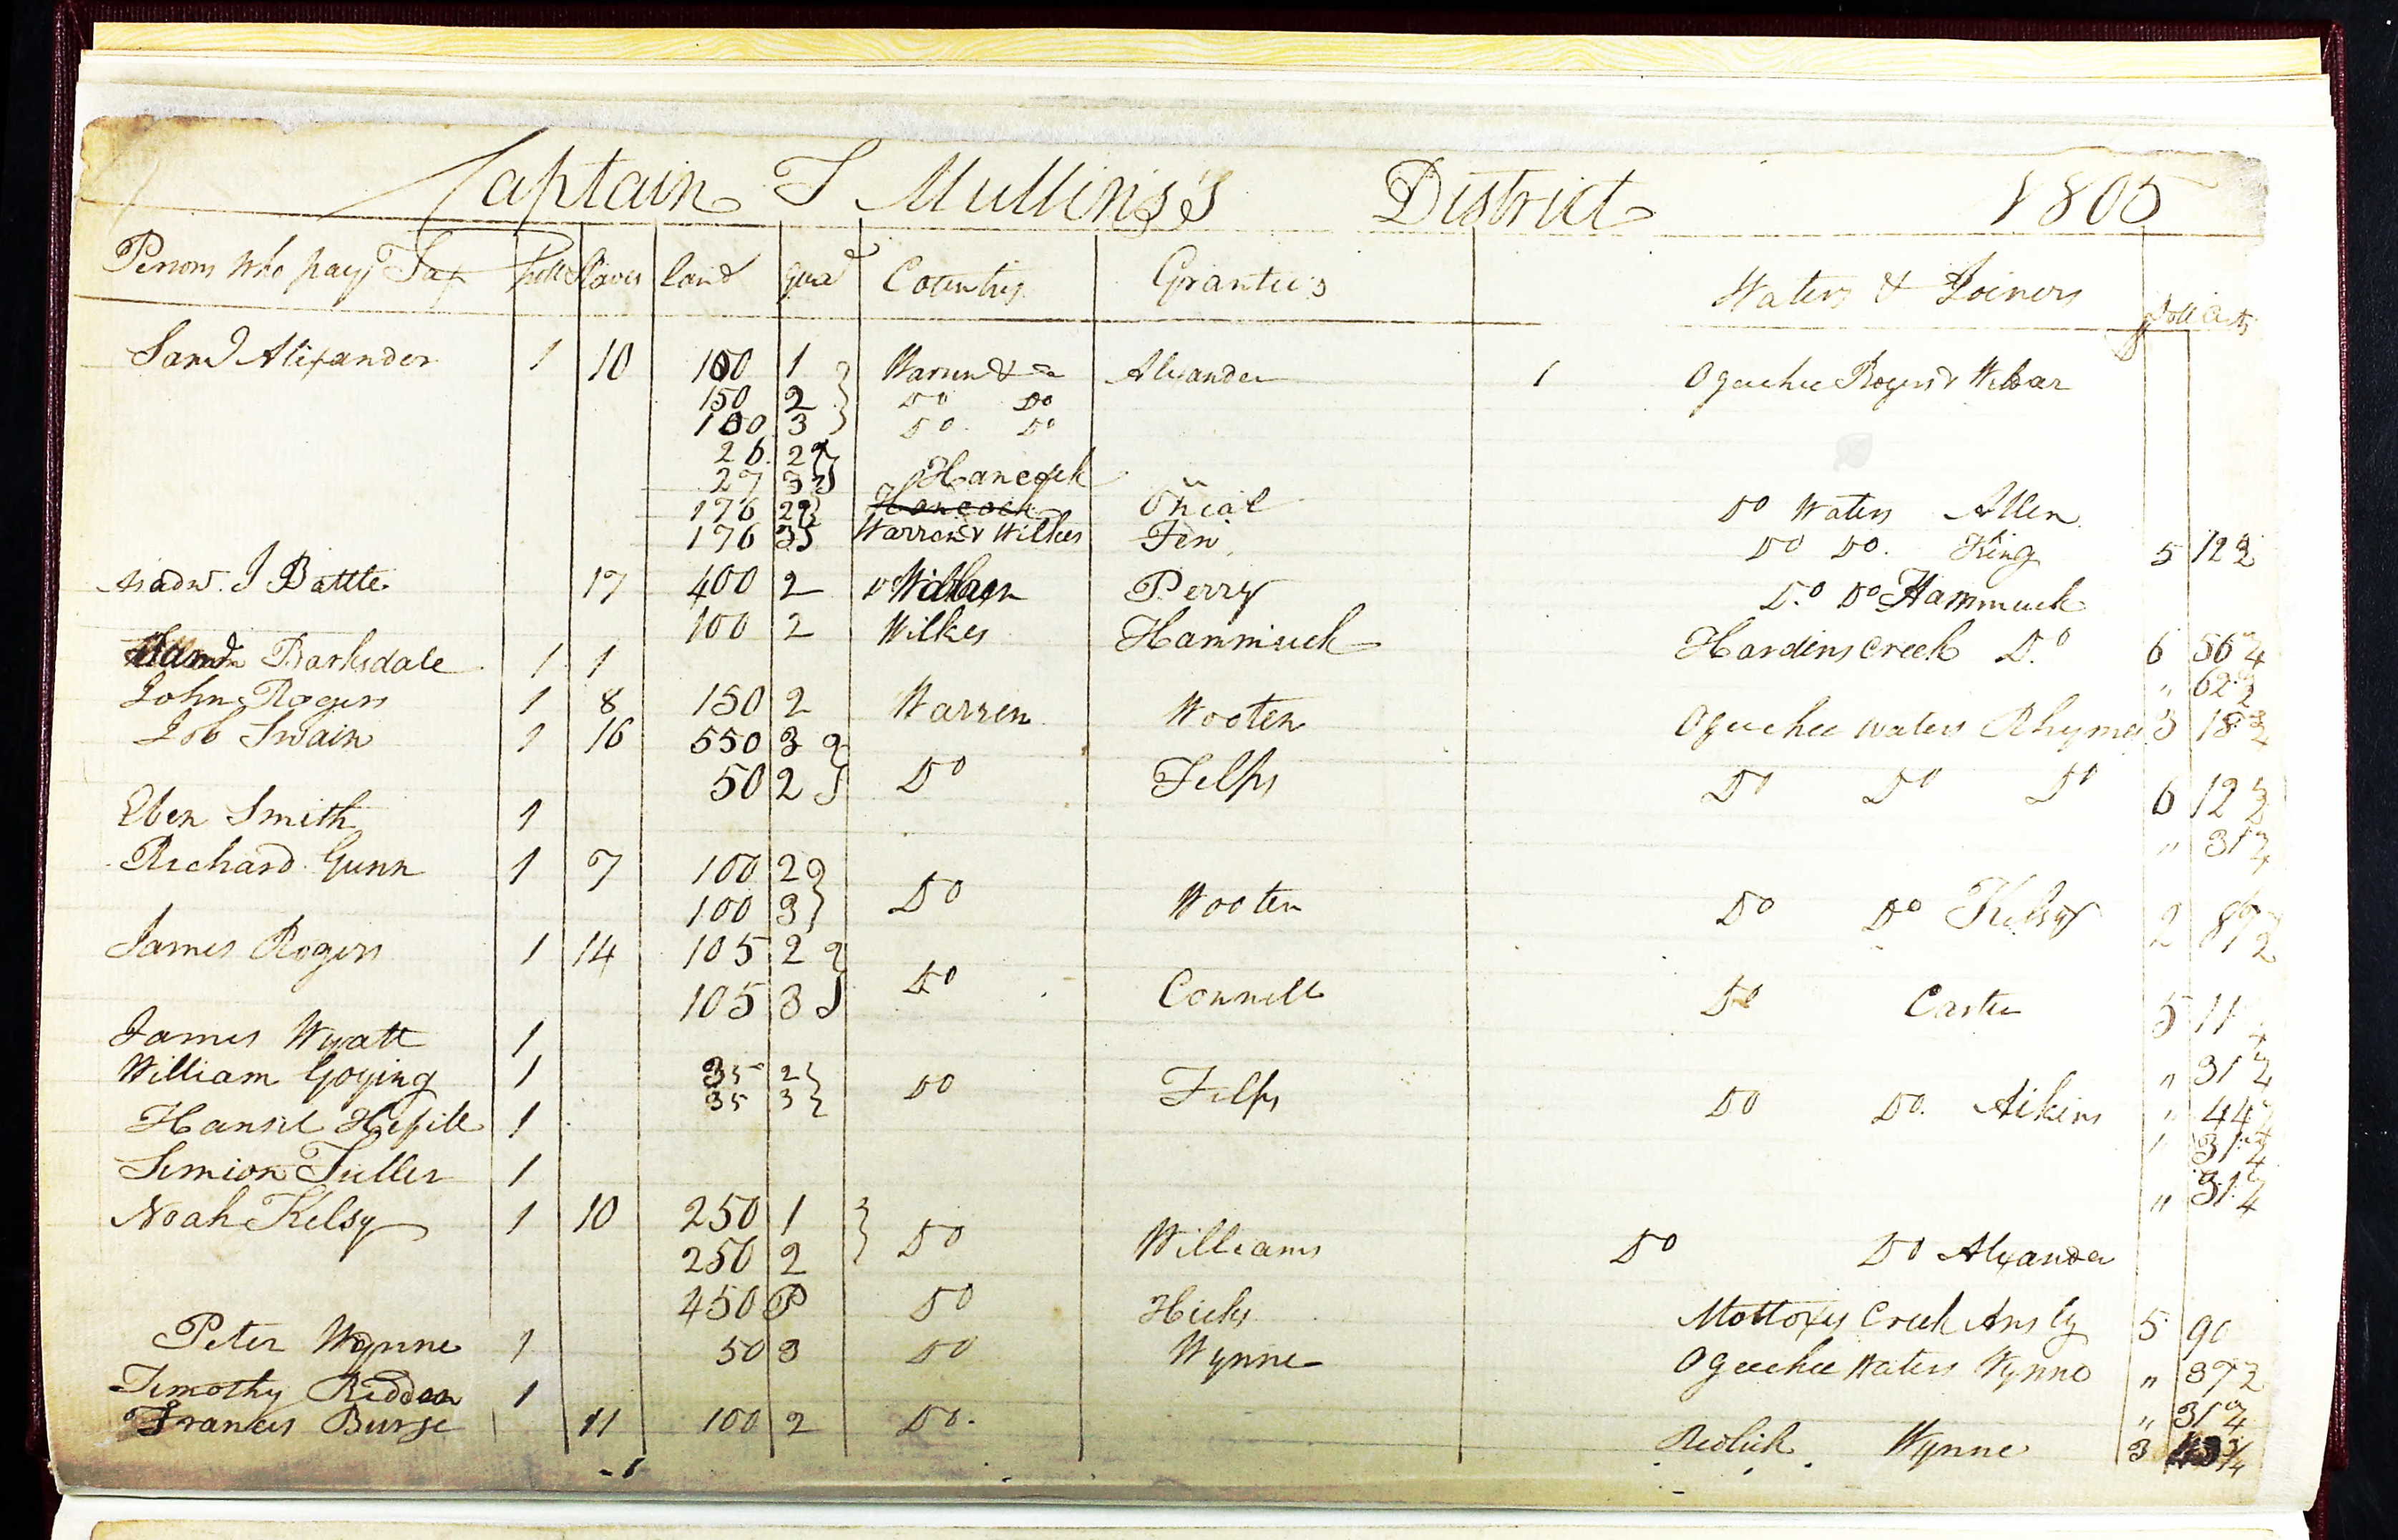 Captain T Mullins's District 1805
Persons who pays Tax Polls Slaves land qua Counties Grantees Waters & Joiners Doll Cts
Saml Alexander 1 10 100 1 Warren & Do Alexander 1 Ogechee Rogers &
150 2 Do Do
100 3 Do Do
26 2
27 3 Hancock
176 2 Oneal Do Waters Allen
176 3 Warren & Wilkes Do Do King 5 12½
J Battle 17 400 2 Perry Do Do Hammuck
100 2 Wilkes Hammuck Hardins Creek Do 6 56¼
Barksdale 1 1 " 62½
John Rogers 1 8 150 2 Warren Wooten Ogechee waters Rhymes 3 18¾
Job Swain 1 16 550 3
50 2 Do Felps Do Do Do 6 12½
Eben Smith 1 " 31¼
Richard Gunn 1 7 100 2
100 3 Do Wooten Do Do Kelsy 2 87½
James Rogers 1 14 105 2
105 3 Do Connell Do Carter 5 11
James Wyatt 1 " 31¼
William Goying 1 35 2
35 3 Do Felps Do Do Aikins " 44
Hansil 1 " 31¼
Simion Fuller 1 " 31¼
Noah Kelsy 1 10 250 1
250 2 Do Williams Do Do Alexander
450 P Do Hicks Creek Ansly 5 90
Peter Wynne 1 50 3 Do Wynne Ogeechee Waters Wynne " 37½
Timothy 1 " 31¼
Francis Burge 11 100 2 Do. Wynne 3